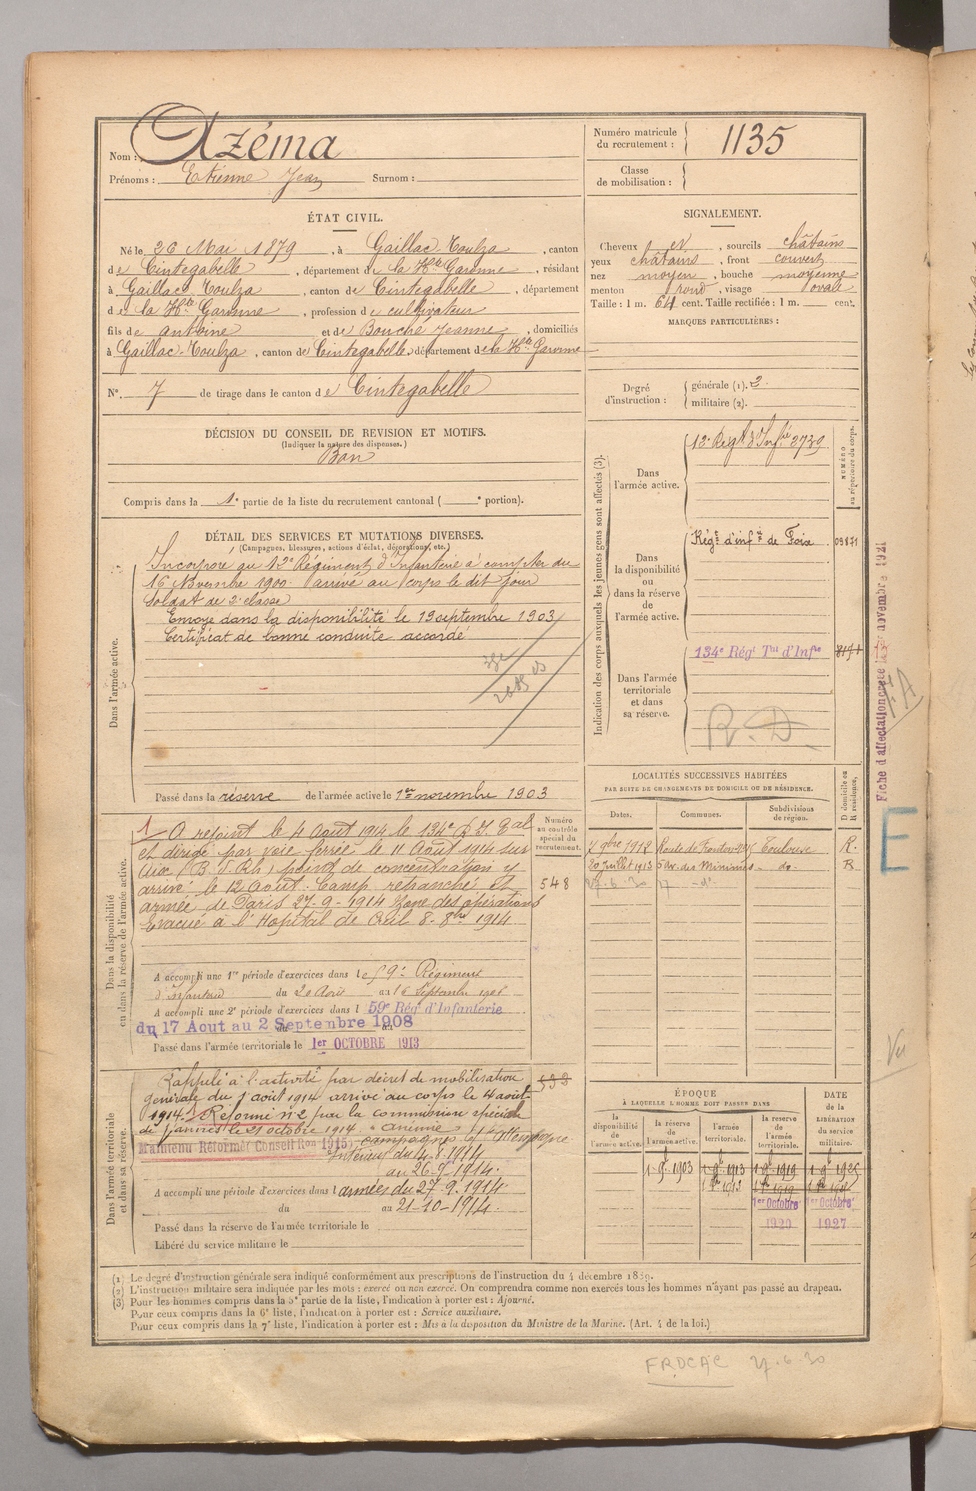 Nom : Azéma
Prénoms : Etienne Jean Surnom :
Numéro matricule du recrutement : 1135
Classe de mobilisation :
ÉTAT CIVIL.
Né le 26 Mai 1879, à Gaillac-Toulza, canton
de Cintegabelle, département de la Hte Garonne, résidant
à Gaillac-Toulza, canton de Cintegabelle, département
de la Hte Garonne, profession de cultivateur
fils de Antoine et de Bouche Jeanne, domiciliés
à Gaillac-Toulza, canton de Cintegabelle, département de la Hte Garonne
N° 7 de tirage dans le canton de Cintegabelle
SIGNALEMENT.
Cheveux et, sourcils châtains
yeux châtains, front couvert
nez moyen, bouche moyenne
menton rond, visage ovale
Taille : 1 m. 64 cent. Taille rectifiée : 1 m. cent.
MARQUES PARTICULIÈRES :
Degré d'instruction : générale (1). 2
militaire (2).
DÉCISION DU CONSEIL DE REVISION ET MOTIFS.
(Indiquer la nature des dispenses.)
Bon
Compris dans la 1e partie de la liste du recrutement cantonal ( e portion).
DÉTAIL DES SERVICES ET MUTATIONS DIVERSES.
(Campagnes, blessures, actions d'éclat, décorations, etc.)
Dans l'armée active.
Incorporé au 12e Régiment d'Infanterie à compter du
16 Novembre 1900 arrivé au corps le dit jour
soldat de 2e classe
Envoyé dans la disponibilité le 19 septembre 1903
Certificat de bonne conduite accordé
Passé dans la réserve de l'armée active le 1er novembre 1903
Indication des corps auxquels les jeunes gens sont affectés (3).
NUMÉRO au répertoire du corps.
Dans l'armée active.
12e Regt d'Infie 2739
Dans la disponibilité ou dans la réserve de l'armée active.
Régt d'infie de Foix
Dans l'armée territoriale et dans sa réserve.
134e Régt Tal d'Infie
R. D.
Fiche d'affectation créée novembre 1921
E
Dans la disponibilité ou dans la réserve de l'armée active.
Numéro au contrôle spécial du recrutement.
548
A rejoint le 4 Aout 1914 le 134e R. I. Tal
et dirigé par voie ferrée le 11 Août 1914 sur
Aix (B. d. Rh) point de concentration y
arrivé le 12 Août. Camp retranché et
armée de Paris 27-9-1914 Zone des opérations
Evacué à l'Hopital de Creil 8-8bre 1914
A accompli une 1re période d'exercices dans le 59e Régiment
d'Infanterie du 20 Août au 16 Septembre 1906
A accompli une 2e période d'exercices dans l 59e Régt d'Infanterie
du 17 Aout au 2 Septembre 1908
Passé dans l'armée territoriale le 1er OCTOBRE 1913
LOCALITÉS SUCCESSIVES HABITÉES
PAR SUITE DE CHANGEMENTS DE DOMICILE OU DE RÉSIDENCE.
Dates. Communes. Subdivisions de région. D domicile ou R résidence.
7bre 1912 Toulouse R.
20 Juillet 1913 Av. des Minimes do R
27-6-30
Dans l'armée territoriale et dans sa réserve.
Rappelé à l'activité par décret de mobilisation
générale du 1 août 1914 arrivé au corps le 4 aout
1914. Réformé n°2 par la commission spéciale
de le 21 octobre 1914 "anémie"
Maintenu Réformé Conseil Ron 1915. campagnes ct l'Allemagne
Intérieur du 4.8.1914
au 26.9.1914.
A accompli une période d'exercices dans l armées du 27.9.1914
du au 21-10-1914.
Passé dans la réserve de l'armée territoriale le
Libéré du service militaire le
ÉPOQUE
À LAQUELLE L'HOMME DOIT PASSER DANS
DATE de la LIBÉRATION du service militaire.
la disponibilité de l'armée active. la réserve de l'armée active. l'armée territoriale. la réserve de l'armée territoriale.
1 9e 1903 1 9e 1913 1 9e 1919 1 9e 1925
1er Octobre 1er Octobre
1920 1927
(1) Le degré d'instruction générale sera indiqué conformément aux prescriptions de l'instruction du 4 décembre 1889.
(2) L'instruction militaire sera indiquée par les mots : exercé ou non exercé. On comprendra comme non exercés tous les hommes n'ayant pas passé au drapeau.
(3) Pour les hommes compris dans la 5e partie de la liste, l'indication à porter est : Ajourné.
Pour ceux compris dans la 6e liste, l'indication à porter est : Service auxiliaire.
Pour ceux compris dans la 7e liste, l'indication à porter est : Mis à la disposition du Ministre de la Marine. (Art. 4 de la loi.)
27-6-30